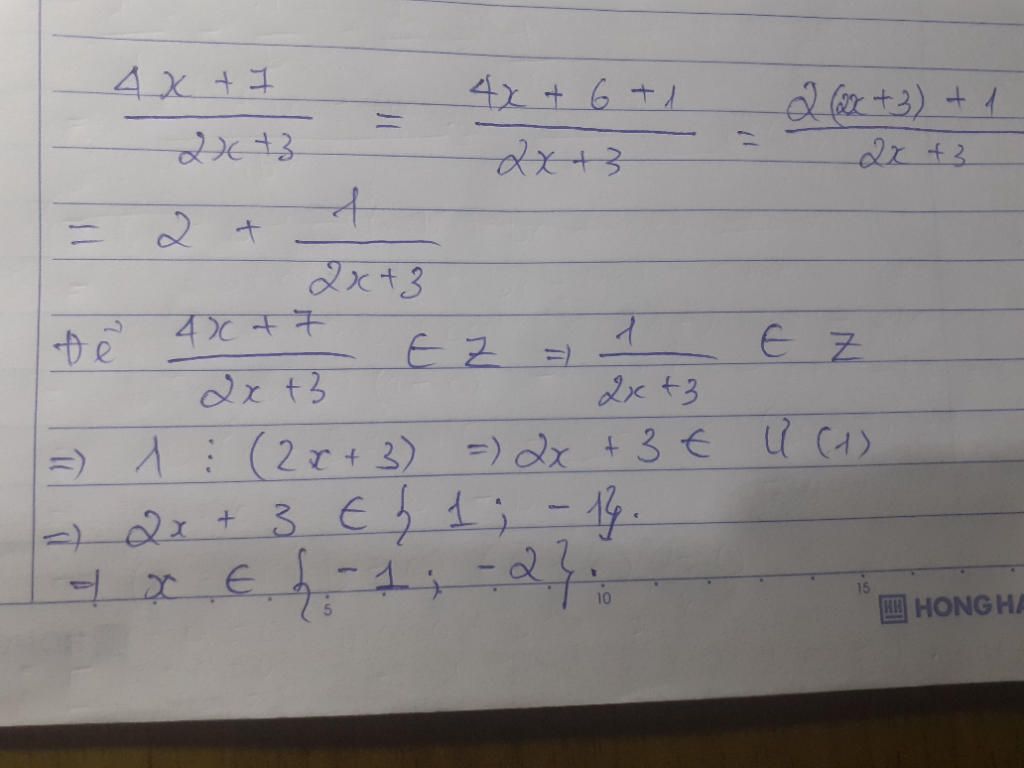 4x + 7 / 2x + 3 = 4x + 6 + 1 / 2x + 3 = 2(2x + 3) + 1 / 2x + 3
= 2 + 1 / 2x + 3
Để 4x + 7 / 2x + 3 ∈ Z => 1 / 2x + 3 ∈ Z
=> 1 ⋮ (2x + 3) => 2x + 3 ∈ Ư(1)
=> 2x + 3 ∈ { 1 ; - 1}.
=> x ∈ { - 1 ; - 2}.
5 10 15
HONG HA